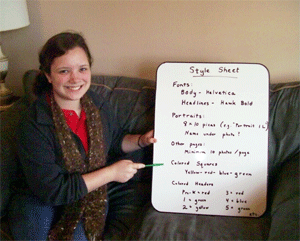 Style Sheet
Fonts:
Body - Helvetica
Headlines - Hawk Bold
Portraits:
9 x 10 pica (eg. "Portrait 1 ↓)
Name under photo!
Other pages:
Minimum 10 photos/page
Colored Squares
Yellow - red - blue - green
Colored Headers
Pre-K = red
3 = red
1 = green
4 = blue
2 = yellow
5 = green